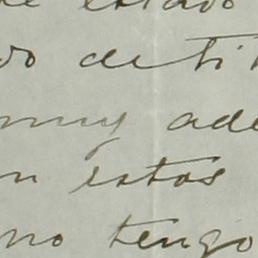 de estado
do de ti
muy ade
n estos
no tengo